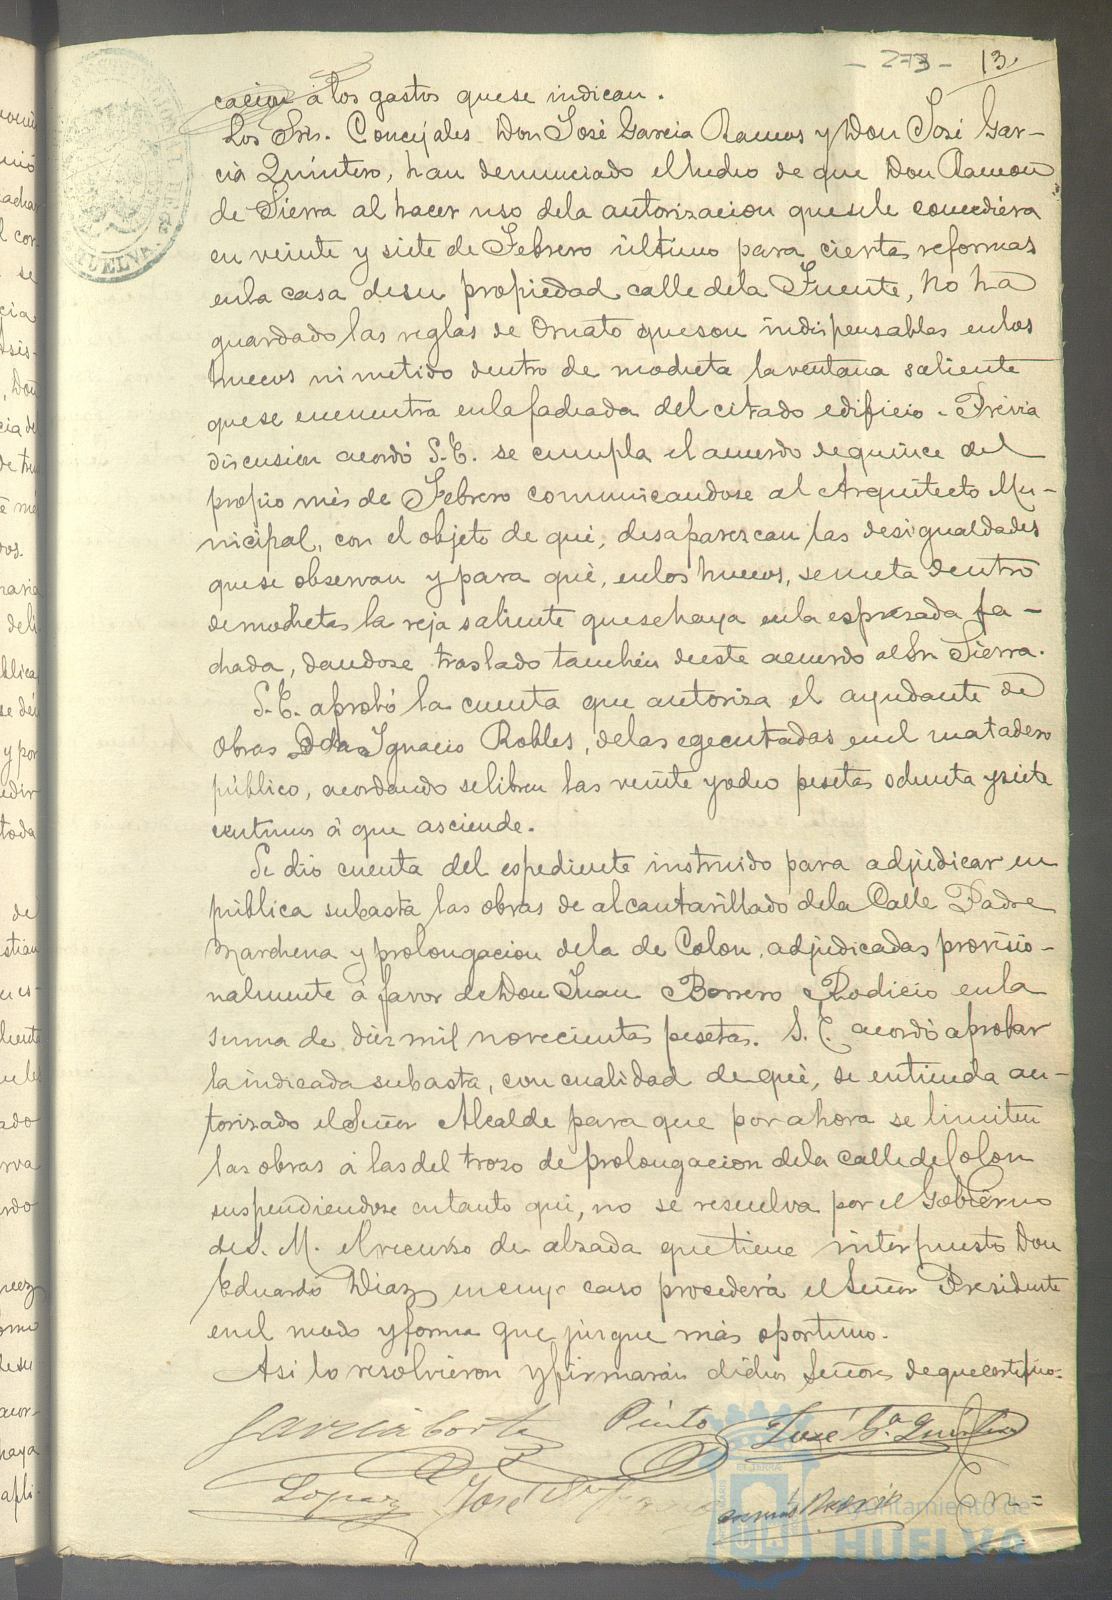 - 273 - 13
cación á los gastos que se indican.
Los Sres. Concejales Don José Garcia Ramos y Don José Gar-
cia Quintero, han denunciado el hecho de que Don Ramon
de Sierra al hacer uso de la autorizacion que se le concediera
en veinte y siete de Febrero último para ciertas reformas
en la casa de su propiedad calle de la Fuente, no ha
guardado las reglas de Ornato que son indispensables en los
huecos ni metido dentro de mocheta la ventana saliente
que se encuentra en la fachada del citado edificio. Prévia
discusion acordó S.E. se cumpla el acuerdo de quince del
propio mes de Febrero comunicandose al Arquitecto Mu-
nicipal, con el objeto de qué, desaparezcan las desigualdades
que se observan y para qué, en los huecos, se meta dentro
de mochetas la reja saliente que se haya en la espresada fa-
chada, dandose traslado tambien de este acuerdo al Sr Sierra.
S.E. aprobó la cuenta que autoriza el ayudante de
obras Ignacio Robles, de las egecutadas en el matadero
público, acordando se libren las veinte y ocho pesetas ochenta y siete
centimos á que asciende.
Se dió cuenta del espediente instruido para adjudicar en
pública subasta las obras de alcantarillado de la Calle Padre
Marchena y prolongacion de la de Colon, adjudicadas provisio-
nalmente á favor de Don Juan Borrero Rodicio en la
suma de diez mil novecientas pesetas. S.E. acordó aprobar
la indicada subasta, con cualidad de qué, se entienda au-
torizado el Señor Alcalde para que por ahora se limiten
las obras á las del trozo de prolongacion de la calle de Colon
suspendiendose en tanto qué, no se resuelva por el Gobierno
de S. M. el recurso de alzada que tiene interpuesto Don
Eduardo Diaz en cuyo caso procederá el Señor Presidente
en el modo y forma que juzgue más oportuno.
Asi lo resolvieron y firmarán dichos Señores de que certifico.
Garcia Cortes Pinto José Ga. Quintero
Lopez José
HUELVA
Ayuntamiento de
HUELVA